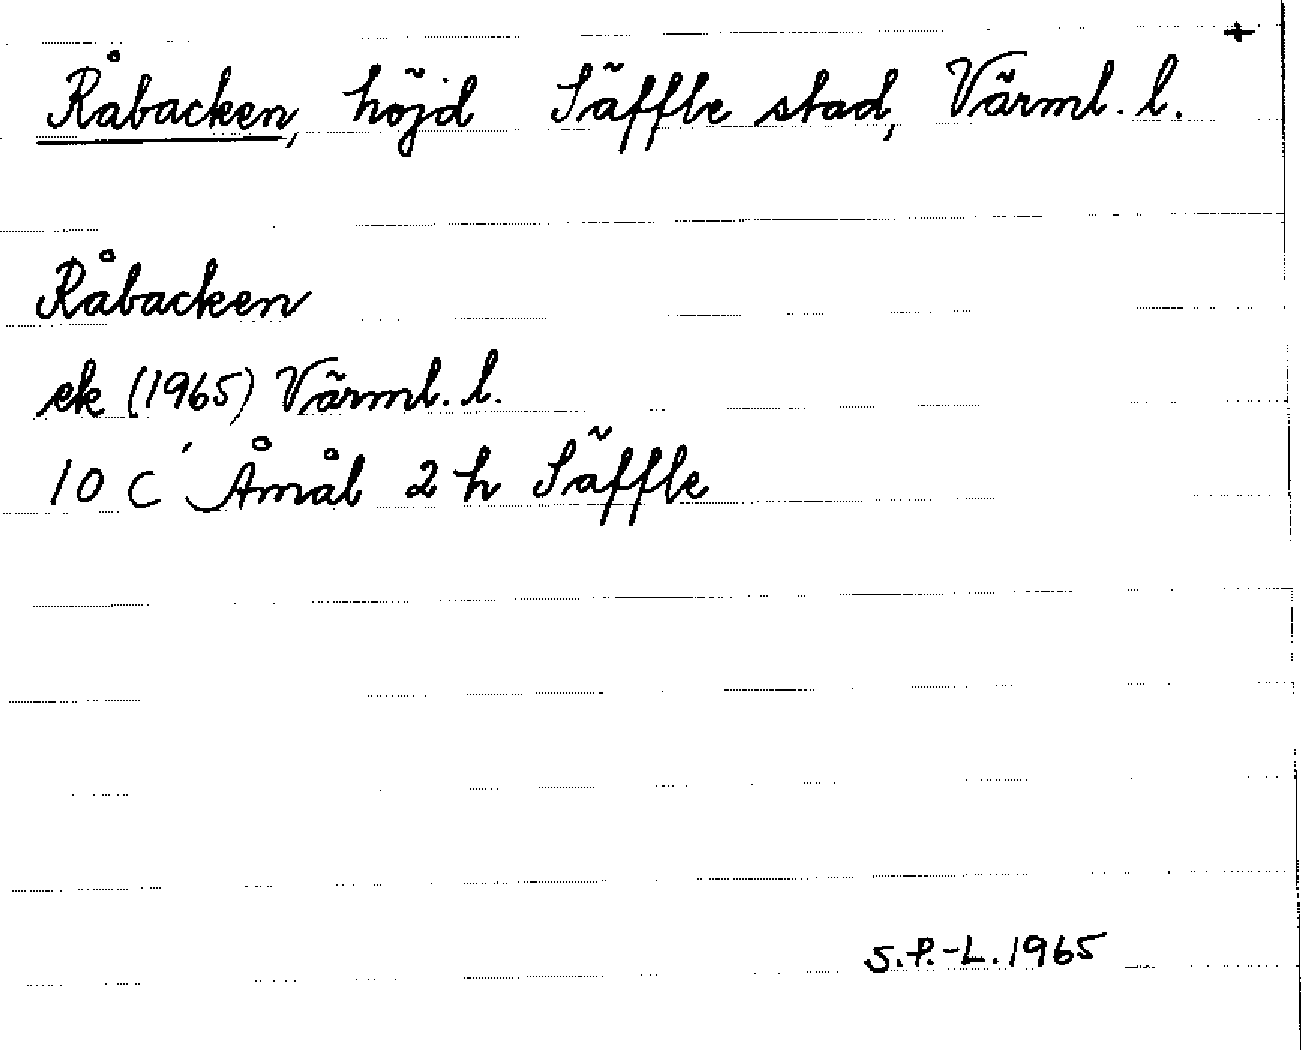 +
Råbacken, höjd Säffle stad, Värml. l.
Råbacken
ek (1965) Värml. l.
10 C Åmål 2 h Säffle
S.P.-L. 1965